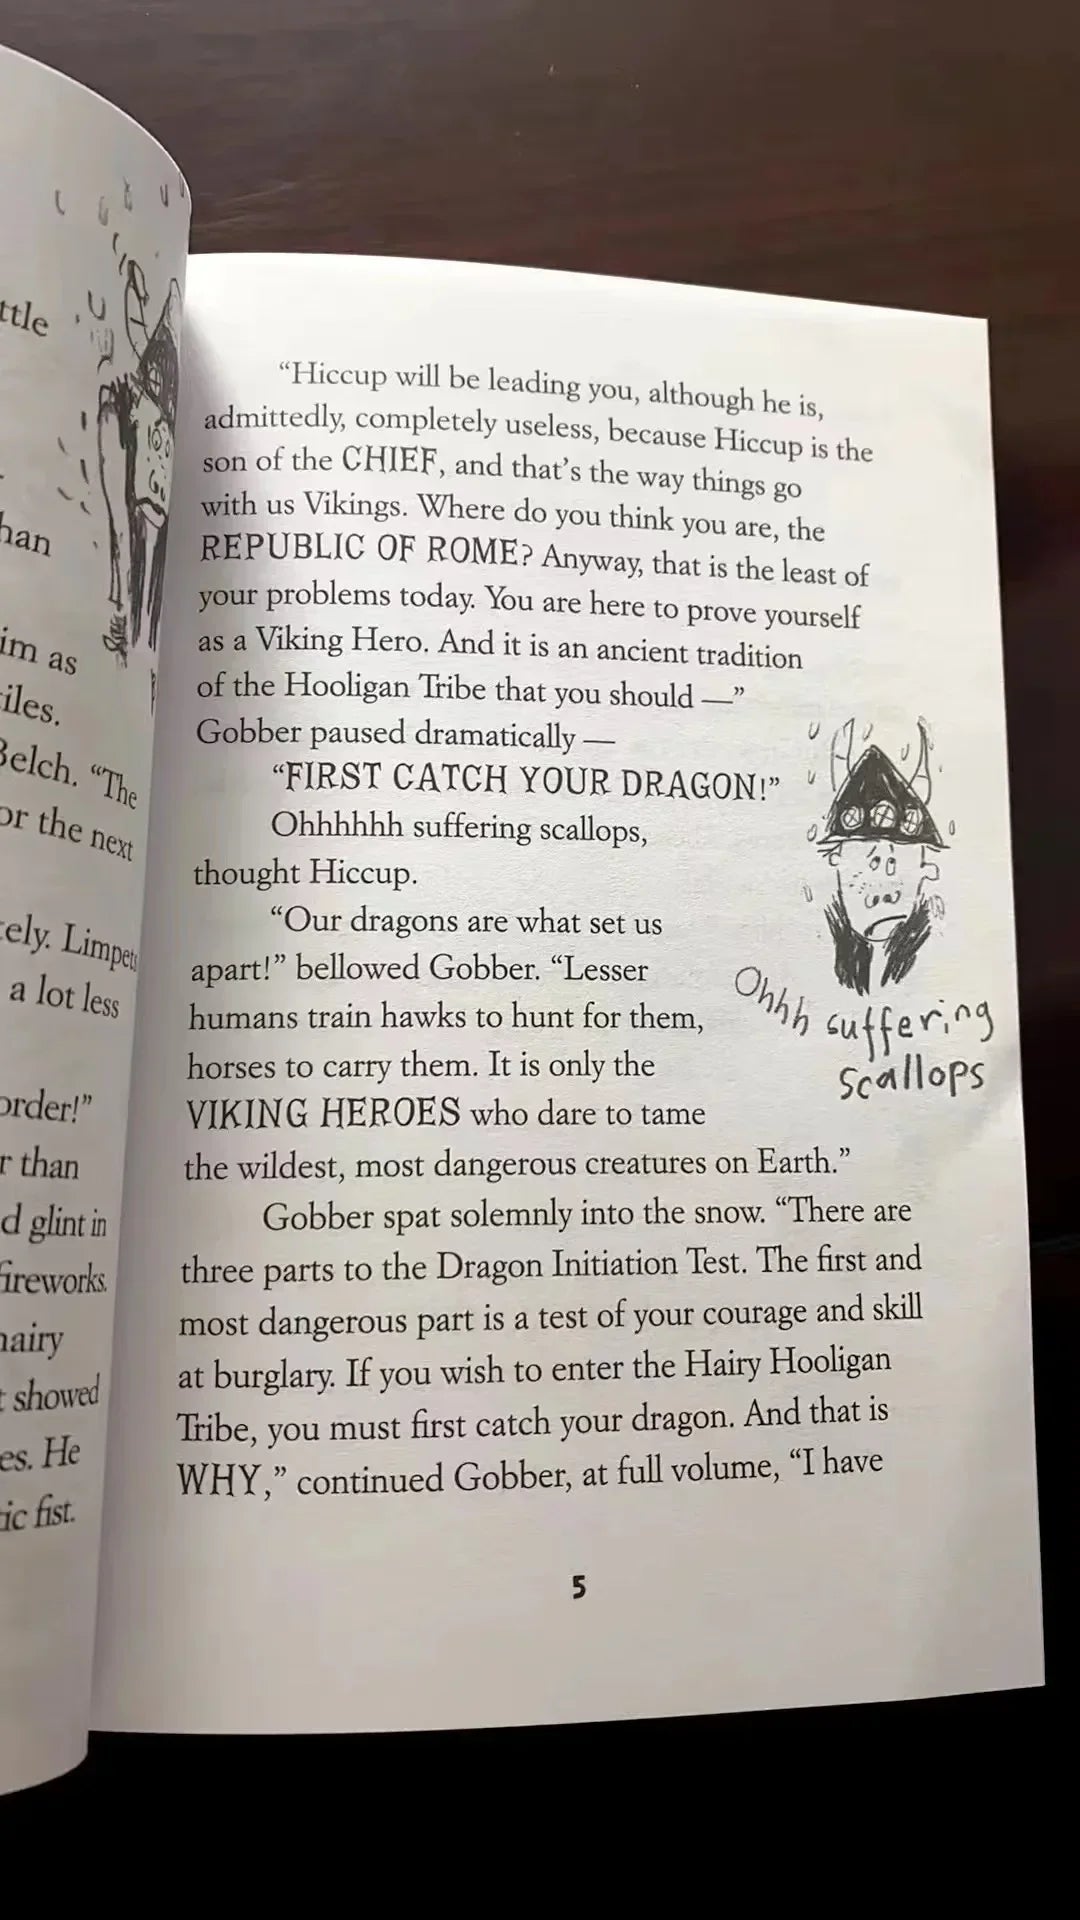 ttle
han
im as
iles.
Belch. “The
or the next
ely. Limpets
a lot less
order!”
r than
d glint in
fireworks.
hairy
t showed
es. He
ic fist.
“Hiccup will be leading you, although he is,
admittedly, completely useless, because Hiccup is the
son of the CHIEF, and that’s the way things go
with us Vikings. Where do you think you are, the
REPUBLIC OF ROME? Anyway, that is the least of
your problems today. You are here to prove yourself
as a Viking Hero. And it is an ancient tradition
of the Hooligan Tribe that you should —”
Gobber paused dramatically —
“FIRST CATCH YOUR DRAGON!”
Ohhhhhh suffering scallops,
thought Hiccup.
“Our dragons are what set us
apart!” bellowed Gobber. “Lesser
humans train hawks to hunt for them,
horses to carry them. It is only the
VIKING HEROES who dare to tame
the wildest, most dangerous creatures on Earth.”
Gobber spat solemnly into the snow. “There are
three parts to the Dragon Initiation Test. The first and
most dangerous part is a test of your courage and skill
at burglary. If you wish to enter the Hairy Hooligan
Tribe, you must first catch your dragon. And that is
WHY,” continued Gobber, at full volume, “I have
Ohhh suffering
scallops
5